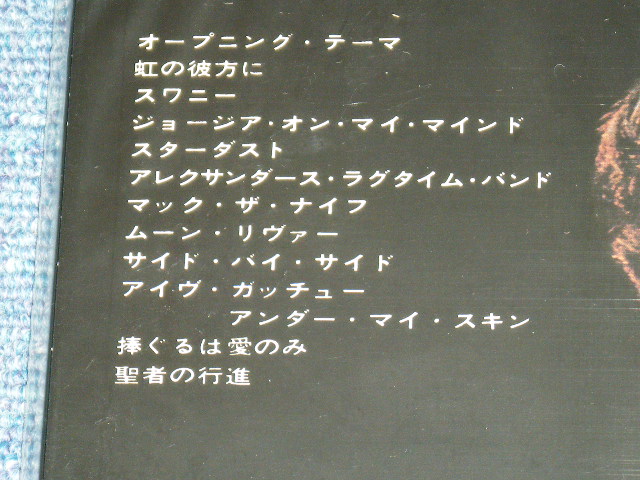 オープニング・テーマ
虹の彼方に
スワニー
ジョージア・オン・マイ・マインド
スターダスト
アレクサンダース・ラグタイム・バンド
マック・ザ・ナイフ
ムーン・リヴァー
サイド・バイ・サイド
アイヴ・ガッチュー
アンダー・マイ・スキン
捧ぐるは愛のみ
聖者の行進